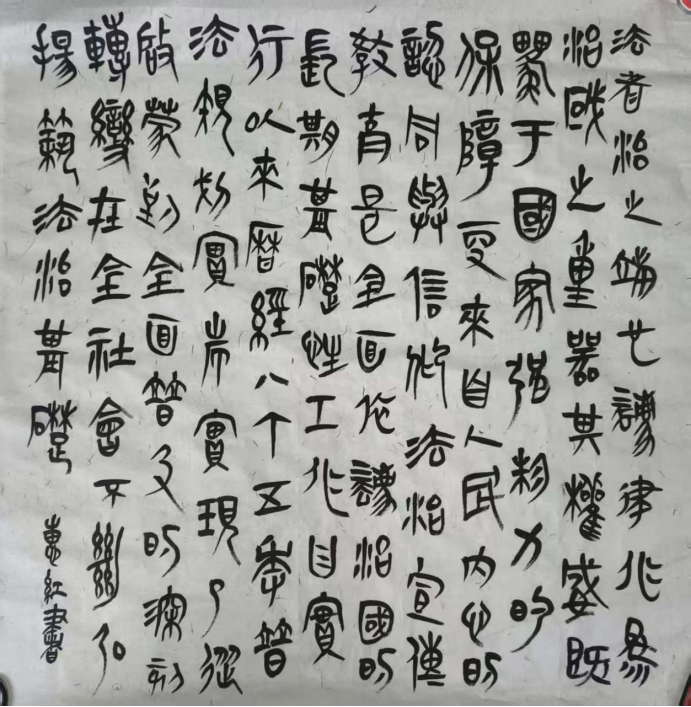 法者治之端也灋律作爲
治國之重器其權威既
于國家强制力的
保障更來自人民内心的
認同與信仰法治宣傳
教育是全面依灋治國的
長期基礎性工作自實
行以來曆經八个五年普
法規劃實施實現了從
啟蒙到全面普及的深刻
轉變在全社會不斷弘
揚築法治基礎
紅書